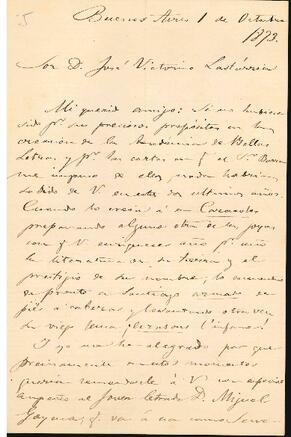 5
Buenos Aires 1 de Octubre
1873.
Sor D. José Victorino Lastarria
Mi querido amigo: Si no hubiera
sido pr. sus preciosos propósitos en la
creacion de la Academia de Bellas
Letras y pr. las cartas en q. el Sr.
me impuso de ellos, nada habria
sabido de V. en estos dos ultimos años.
Cuando lo creia á en Caracoles
preparando alguna obra de las joyas
con q. V. enriquece año pr. año
la literatura de su tierra y el
prestigio de su nombre, lo encuentro
de pronto en Santiago armado de
pies á cabeza y levantando otra vez
su viejo
I yo me he alegrado por que
precisamente en estos momentos
queria recomendarle á V. con especial
empeño al joven letrado D. Miguel
q. va á esa como